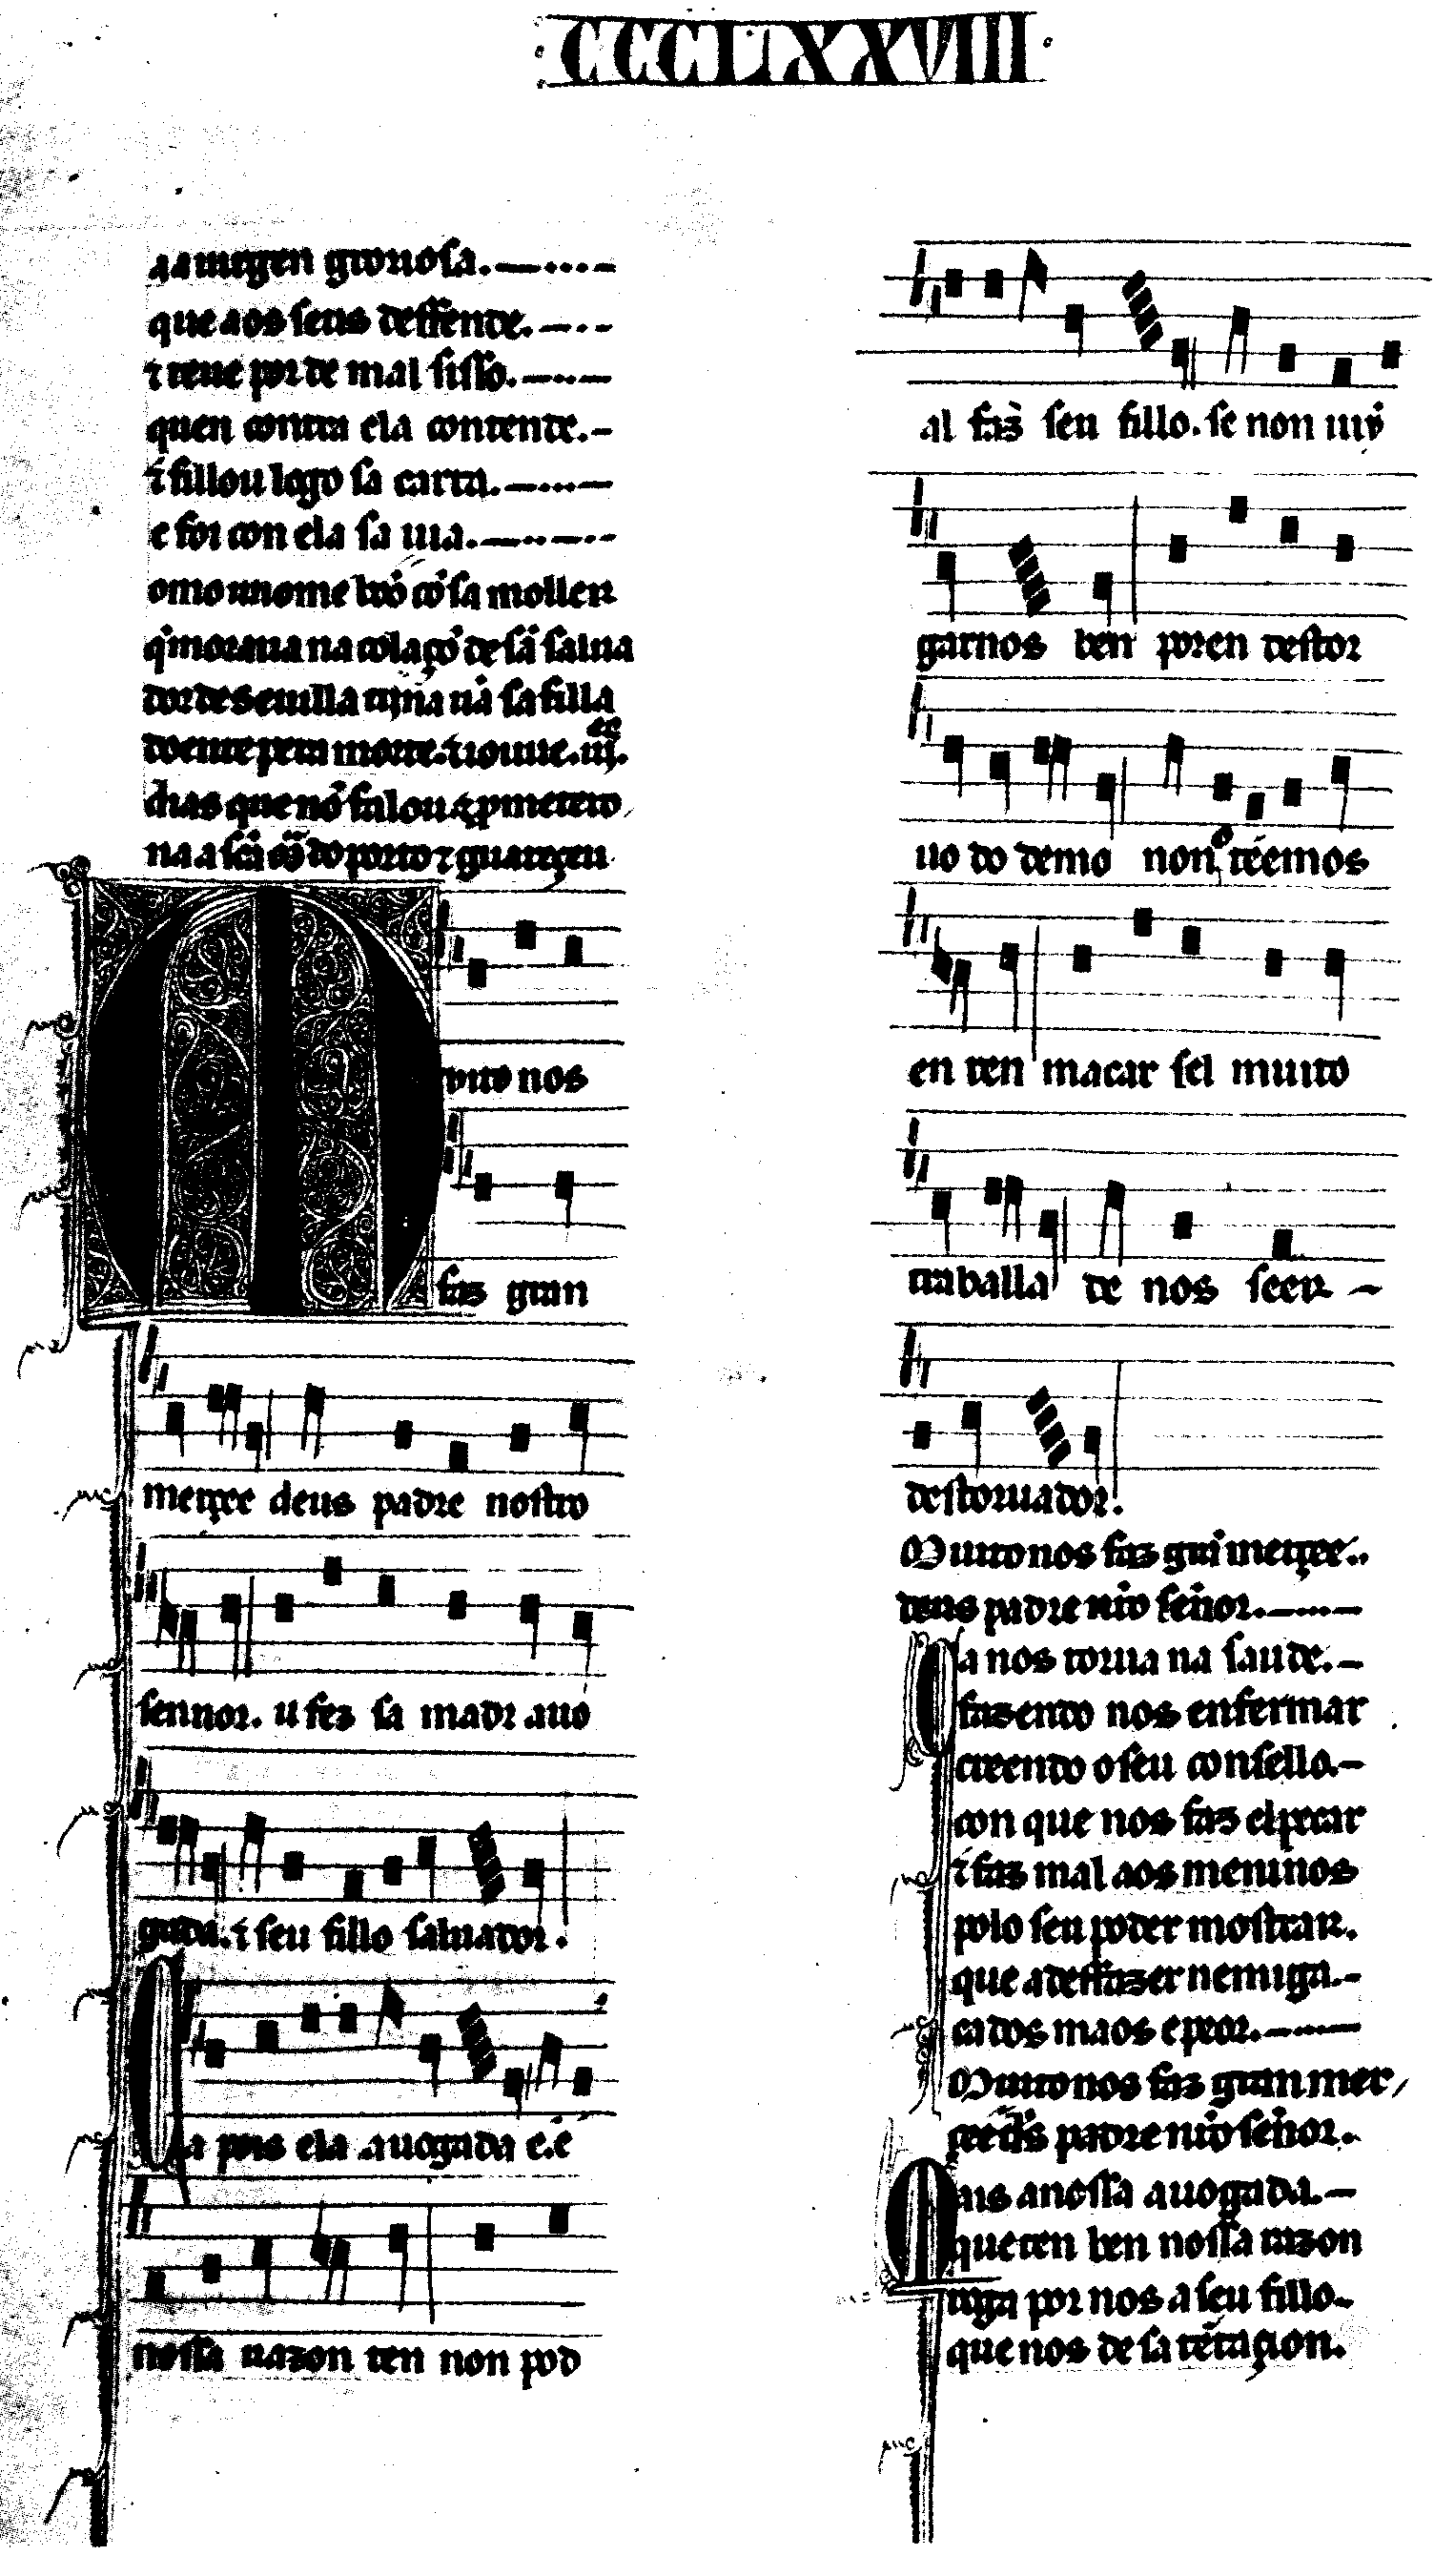 CCCLXXVIII
aa uirgen grorıosa.
que aos seus deffende.
⁊ teue por de mal sisso.
quen contra ela contende.
⁊ fillou logo sa carta.
e foi con ela sa uia.
omo un ome bõo cõ sa moller
q̇ moraua na colaçõ de sã salua
dor de seuilla tijnna ũa sa filla
doente pera morte. ⁊ iouue. iij.
dias que nõ falou ⁊ ꝓmeterõ
na a scã mª do porto ⁊ guareçeu
Muito nos
faz gran
merçee deus padre nostro
sennor. u fez sa madr auo
gada. ⁊ seu fillo saluador.
Ca pois ela auogada é. e
nossa razon ten non pod
al faz̃ seu fillo. se non iuỹ
garnos ben poren destor
uo do demo non teemos
en ren macar sel muito
traballa de nos seer
destoruador.
Muito nos faz grã merçee.
deus padre nr̃o señor.
Ca nos torua na saude.
fazendo nos enfermar
creendo o seu consello.
con que nos faz el pecar
⁊ faz mal aos meninos
polo seu poder mostrar.
que a deffazer nemiga.
ca dos maos e peor.
Muito nos faz gran mer
çee d̃s padre nr̃o señor.
Mais a nossa auogada.
que ten ben nossa razon
roga por nos a seu fillo
que nos de sa tẽtaçion.